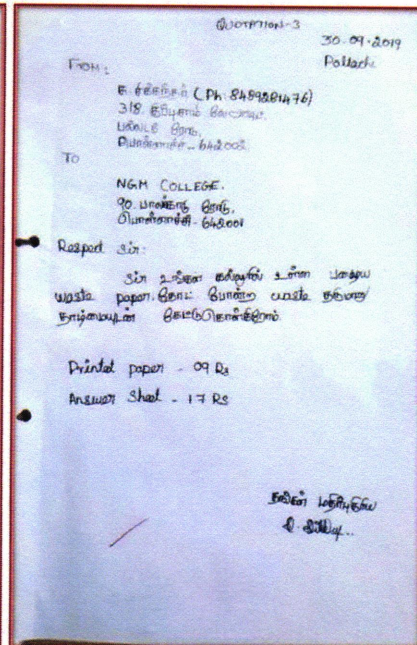 QUOTATION-3
30-09-2019
Pollachi
From:
(Ph: 8489281476)
3/8.
642002
To
NGM COLLEGE.
90. பாலக்காடு ரோடு,
பொள்ளாச்சி - 642001
Respect Sir:
Sir உங்கள் கல்லூரியில் உள்ள பழைய
waste paper, நோட் போன்ற waste தருமாறு
தாழ்மையுடன் கேட்டுகொள்கிறோம்
Printed paper - 09 Rs
Answer Sheet - 17 Rs
தங்கள்